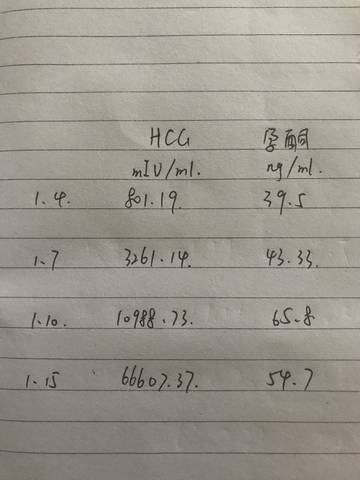 HCG 孕酮
mIU/ml. ng/ml.
1.4. 801.19. 39.5
1.7 3261.14. 43.33.
1.10. 10988.73. 65.8
1.15 66607.37. 54.7